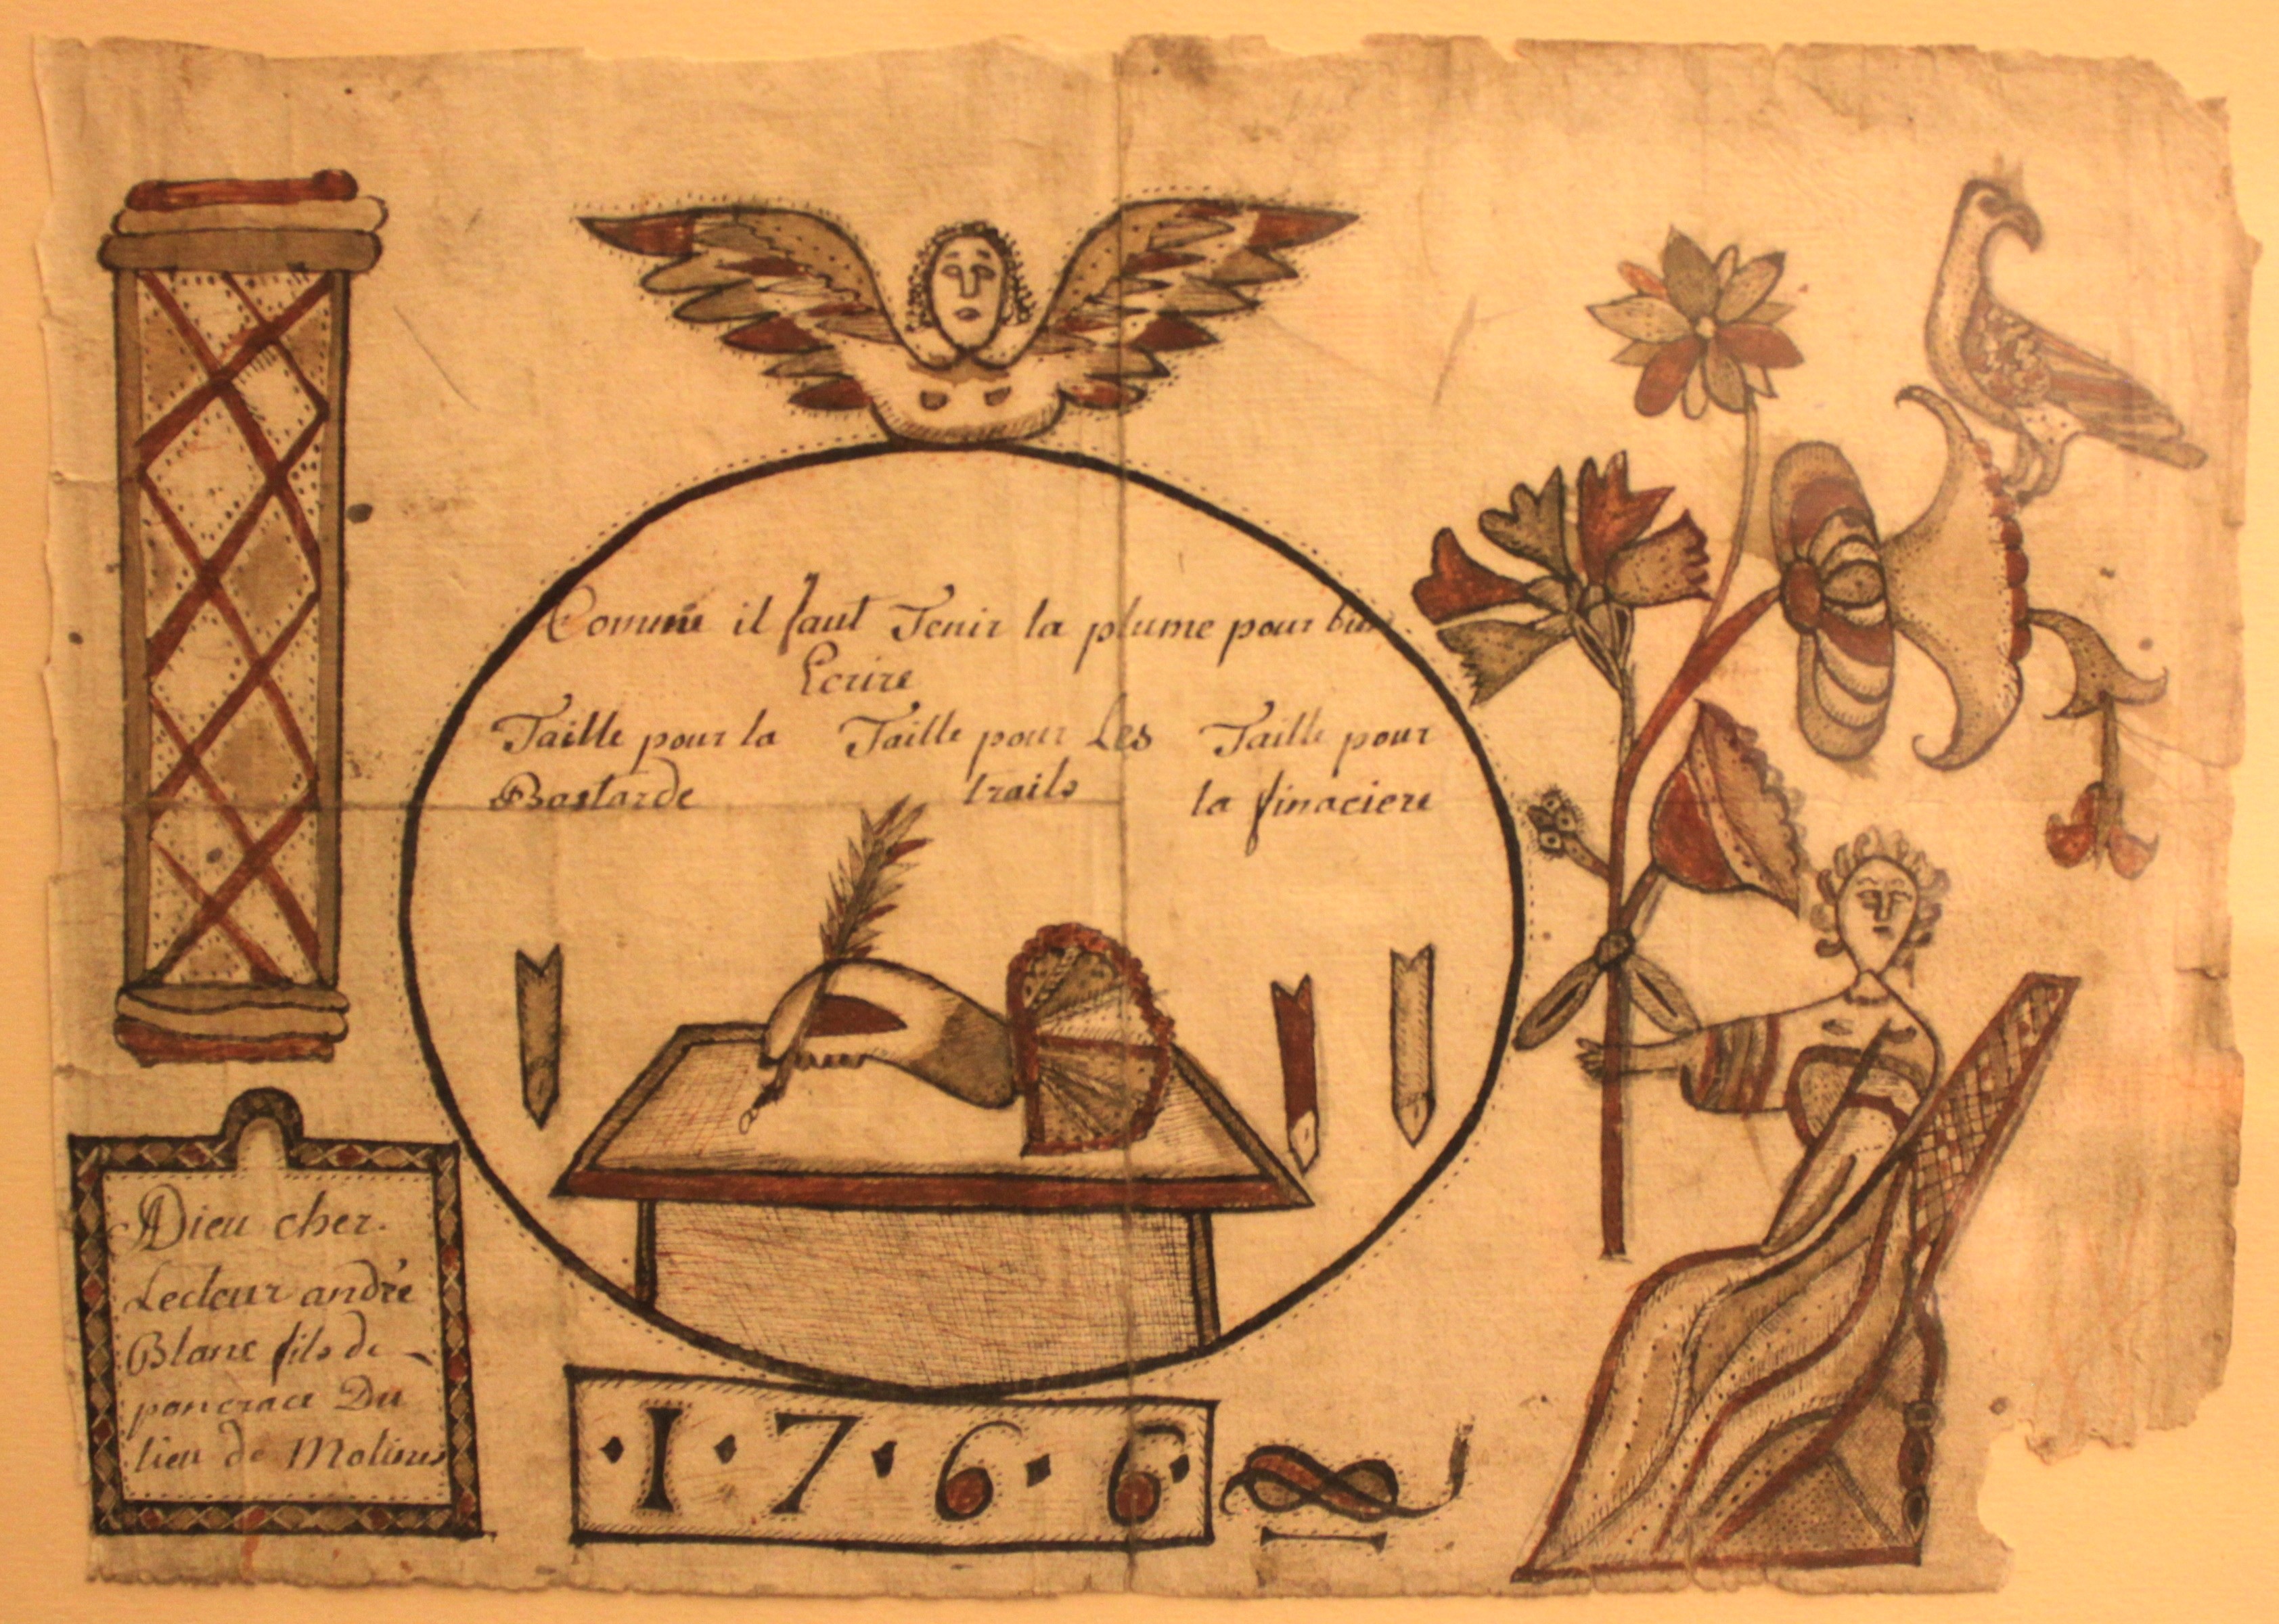 Comme il faut Tenir la plume pour bien
Ecrire
Taille pour la
Bastarde
Taille pour Les
traits
Taille pour
la finaciere
ADieu cher
Lecteur andré
Blanc fils de
poncrace Du
lieu de Molines
·1·7·6·6·